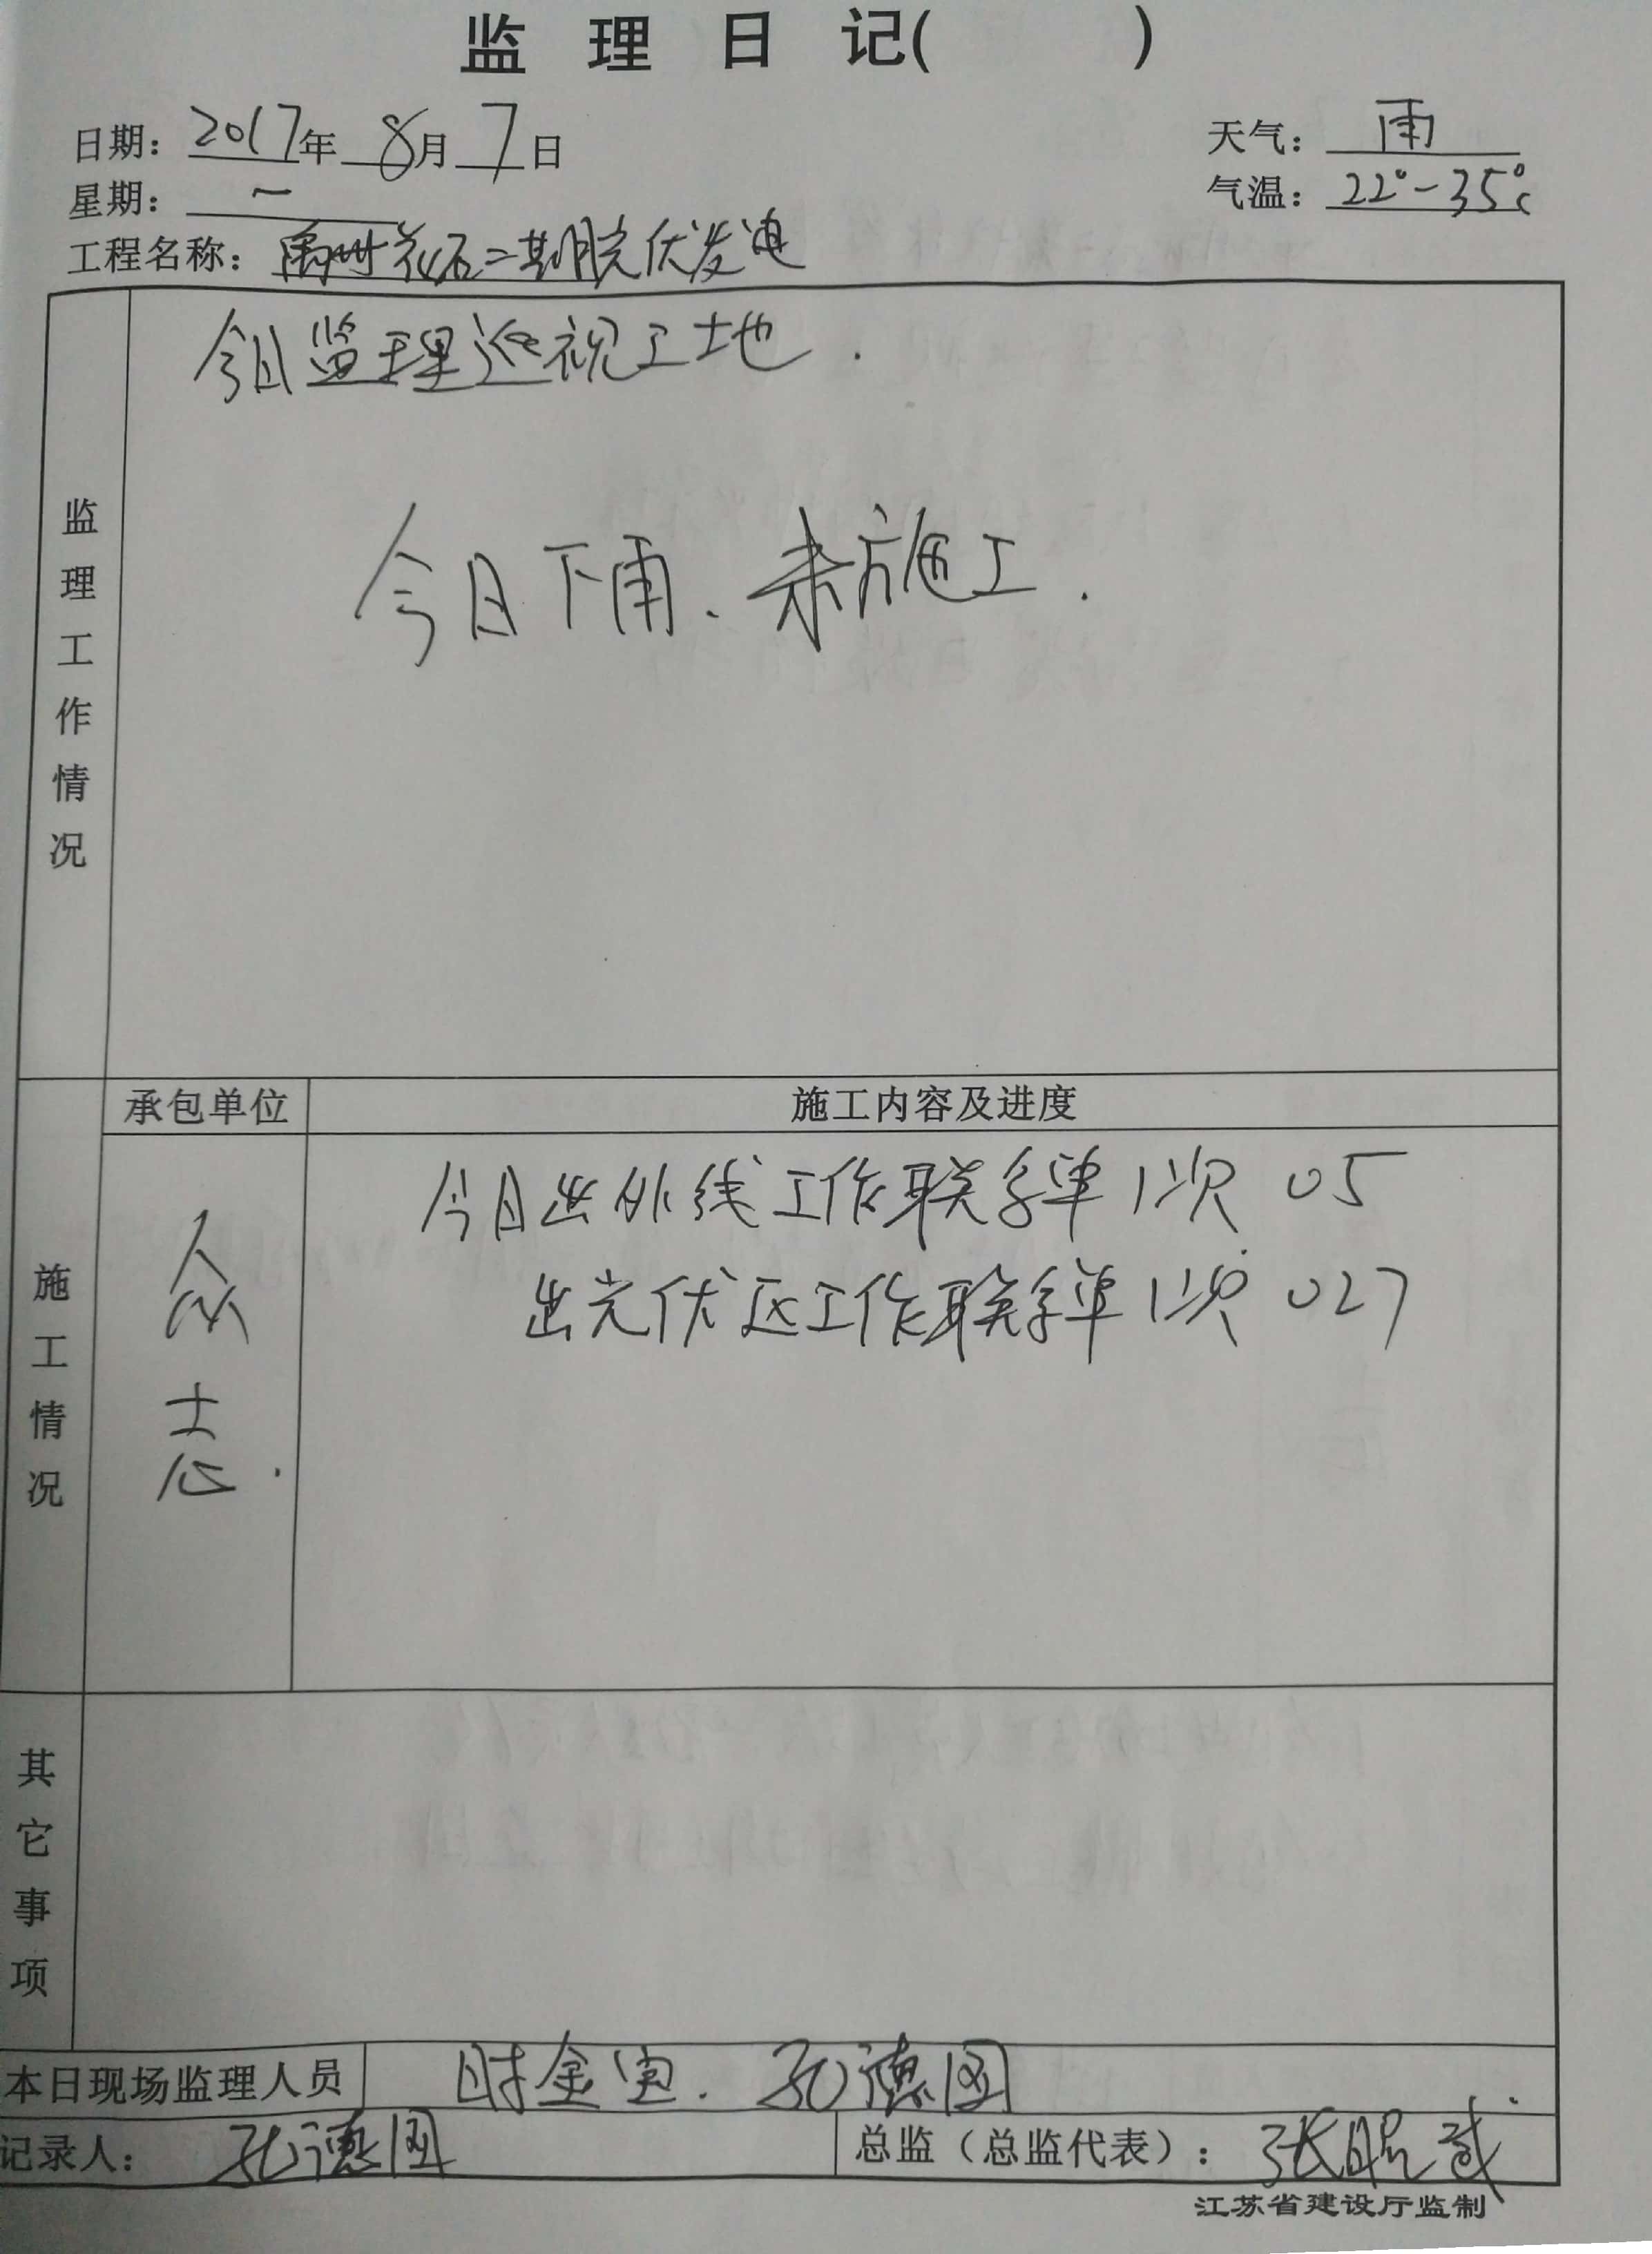 监理日记(        )
日期：2017年8月7日
天气：雨
星期：一
气温：22°-35℃
工程名称：禹州花石二期光伏发电
监理工作情况
今日监理巡视工土地.
今日下雨、未施工.
施工情况
承包单位
施工内容及进度
众志
今日出外线工作联系单1次 05
出光伏区工作联系单1次 027
其它事项
本日现场监理人员
时金宝. 孔德图
记录人：孔德图
总监（总监代表）：张昭
江苏省建设厅监制